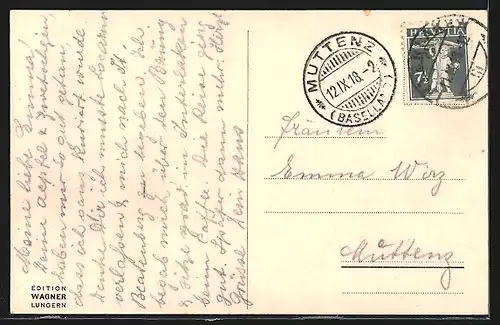 Meine liebe Emma!
Deine Aepfel & Zwetschgen,
haben mir so gut getan,
dass ich ganz kuriert wurde
heute. Da ich musste Locarno
verlassen & mich nach St.
Beatenberg begeben. Ich
begab mich über den Brünig
& sitze grad in Interlaken
beim Kaffe. Die Reise ging
gut. Später dann mehr. Herzl.
Grüsse Dein Hans
EDITION
WAGNER
LUNGERN
MUTTENZ
12.IX.18.-2
(BASELLAND)
HELVETIA
7½
Fräulein
Emma Wirz
Muttenz